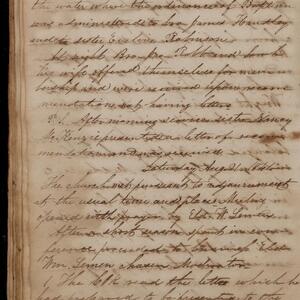 the water where the ordinance of Baptism
was administered to bro James Hensley
and to sister Evaline Robinson
At night Bro Robt and
his wife offered themselves for mem
bership and were received upon recom
mendation not having letters
After morning services sister Nancy
McKenzie presented a letter of recom
mendation and was received
Saturday Aug
The church met pursuant to adjournment
at the usual time and place Meeting
opened with prayer by Eld. Wm Lemen
After a short season spent in con
ference proceeded to business Eld
Wm. Lemen chosen Moderator
1 The Clk read the letter which he